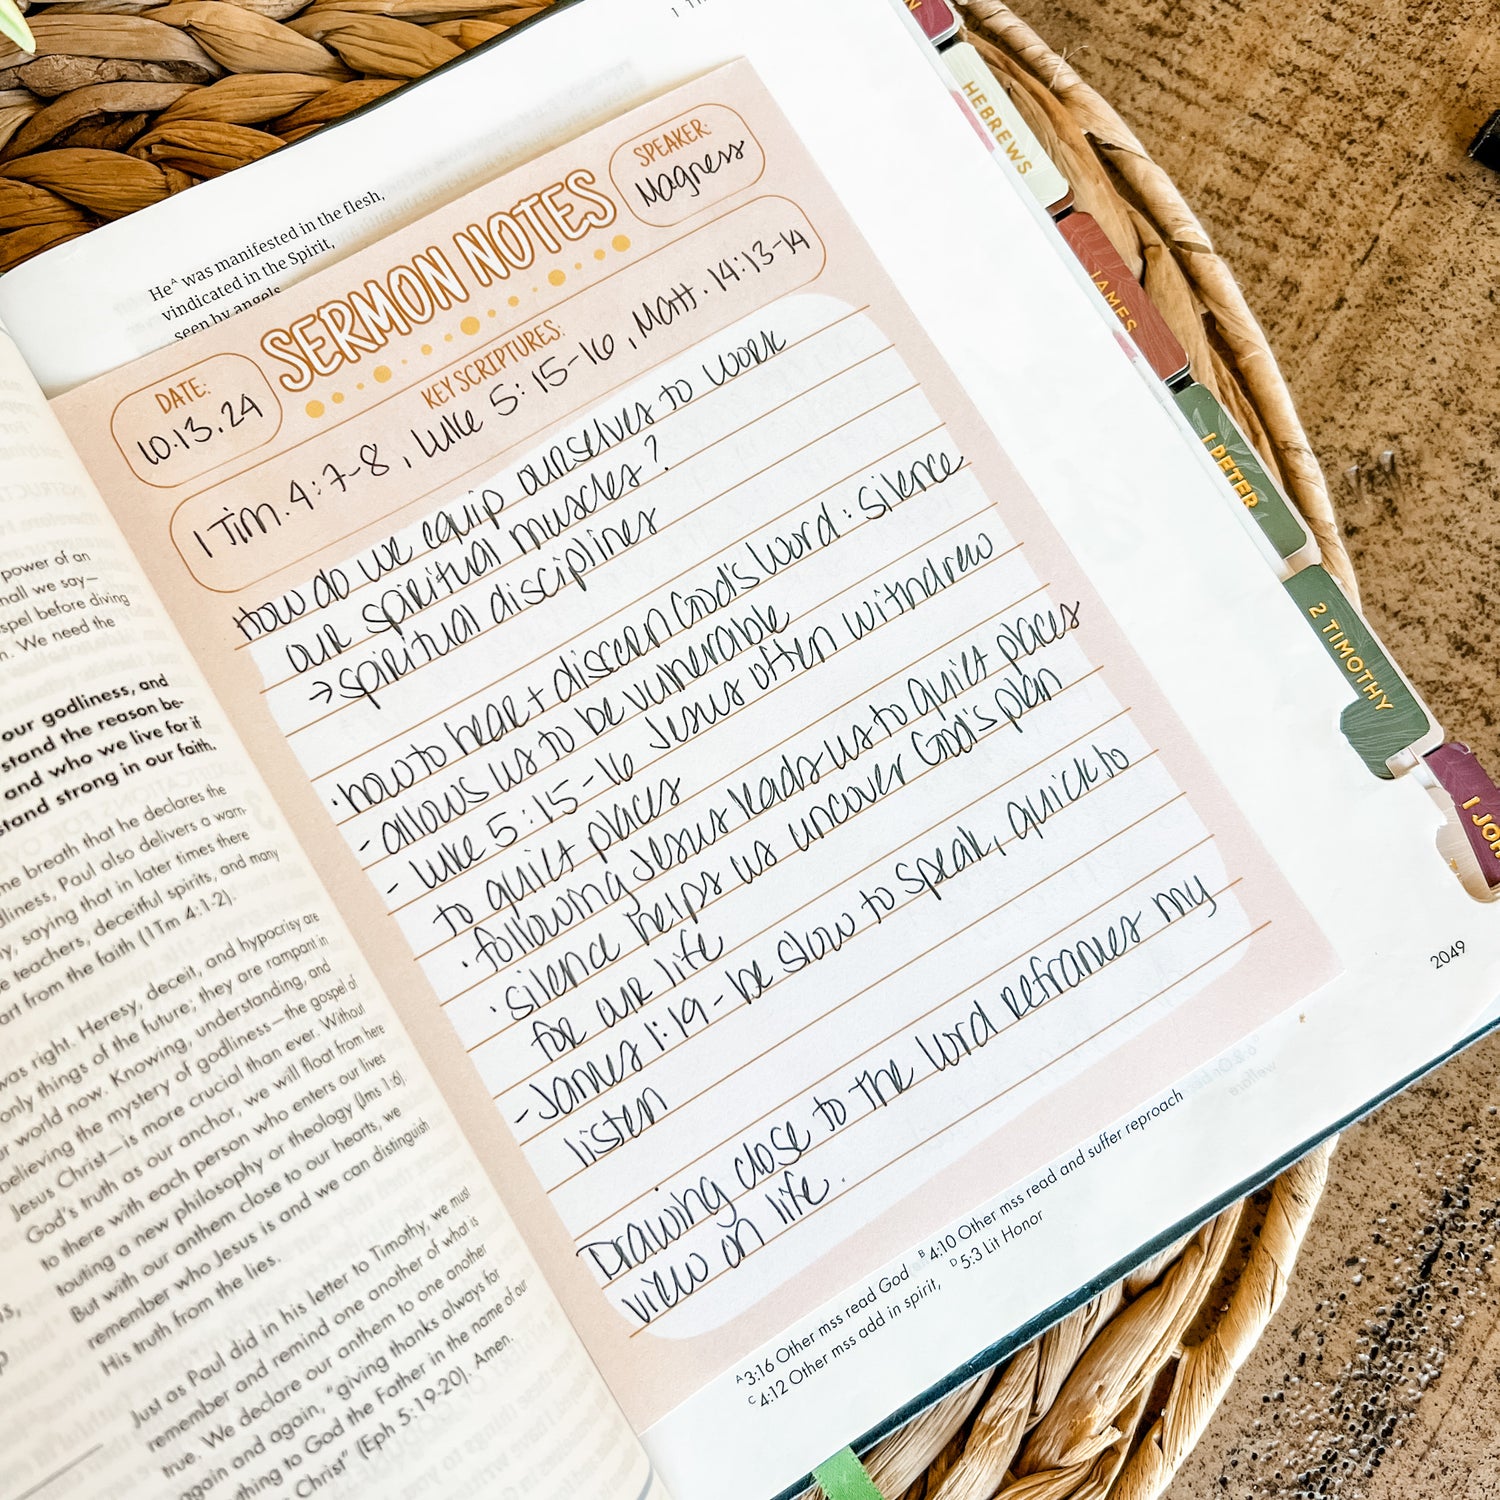 He^A was manifested in the flesh,
vindicated in the Spirit,
seen by angels
SERMON NOTES
SPEAKER:
Magness
DATE:
10.13.24
KEY SCRIPTURES:
1 Tim. 4:7-8, Luke 5:15-16, Matt. 14:13-14
How do we equip ourselves to work
our spiritual muscles?
→ spiritual disciplines
· how to hear + discern God's Word: silence
- allows us to be vulnerable
- Luke 5:15-16 Jesus often withdrew
to quiet places
· following Jesus leads us to quiet places
· silence helps us uncover God's plan
for our life
- James 1:19 - be slow to speak, quick to
listen
Drawing close to the Word reframes my
view on life.
^A 3:16 Other mss read God ^B 4:10 Other mss read and suffer reproach
^C 4:12 Other mss add in spirit, ^D 5:3 Lit Honor
2049
HEBREWS
JAMES
1 PETER
2 TIMOTHY
1 JOH
power of an
hall we say—
spel before diving
. We need the
our godliness, and
stand the reason be-
and who we live for if
stand strong in our faith.
me breath that he declares the
dliness, Paul also delivers a warn-
y, saying that in later times there
e teachers, deceitful spirits, and many
art from the faith (1Tm 4:1-2).
was right. Heresy, deceit, and hypocrisy are
only things of the future; they are rampant in
ur world now. Knowing, understanding, and
believing the mystery of godliness—the gospel of
Jesus Christ—is more crucial than ever. Without
God's truth as our anchor, we will float from here
to there with each person who enters our lives
touting a new philosophy or theology (Jms 1:6).
But with our anthem close to our hearts, we
remember who Jesus is and we can distinguish
His truth from the lies.
Just as Paul did in his letter to Timothy, we must
remember and remind one another of what is
true. We declare our anthem to one another
again and again, "giving thanks always for
ything to God the Father in the name of our
Christ" (Eph 5:19-20). Amen.